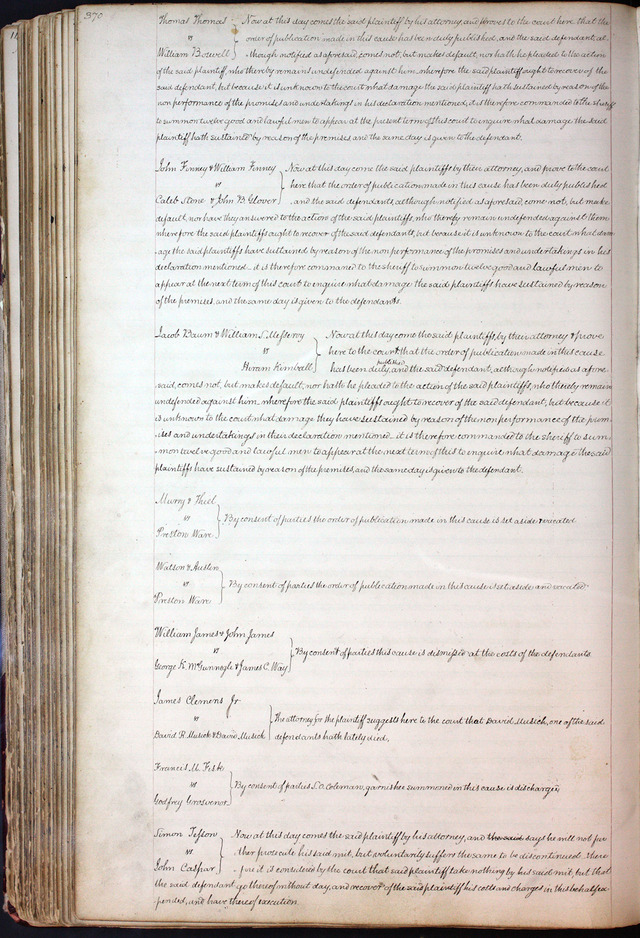 370
Thomas Thomas
vs
William Bowell
Now at this day comes the said plaintiff by his attorney and proves to the court here that the
order of publication made in this cause has been duly published, and the said defendant, al
though notified as aforesaid, comes not, but makes default, nor hath he pleaded to the action
of the said plaintiff, who thereby remains undefended against him, wherefore the said plaintiff ought to recover of the
said defendant, but because it is unknown to the court what damage the said plaintiff hath sustained by reason of the
non performance of the promises and undertakings in his declaration mentioned, it is therefore commanded to the sheriff
to summon twelve good and lawful men to appear at the present term of this court to enquire what damage the said
plaintiff hath sustained by reason of the premises and the same day is given to the defendant.
John Finney & William Finney
vs
Caleb Stone & John B Glover
Now at this day come the said plaintiffs by their attorney, and prove to the court
here that the order of publication made in this cause has been duly published
and the said defendants, although notified as aforesaid, come not, but make
default, nor have they answered to the action of the said plaintiffs, who thereby remain undefended against them
wherefore the said plaintiffs ought to recover of the said defendants, but because it is unknown to the court what dam
age the said plaintiffs have sustained by reason of the non performance of the promises and undertakings in his
declaration mentioned it is therefore commanded to the sheriff to summon twelve good and lawful men to
appear at the next term of this court to enquire what damage the said plaintiffs have sustained by reason
of the premises, and the same day is given to the defendants.
Jacob Baum & William S. Messeroy
vs
Hiram Kimball
Now at this day come the said plaintiffs, by their attorney & prove
here to the court that the order of publication made in this cause
has been duly published, and the said defendant, although notified as afore
said, comes not, but makes default, nor hath he pleaded to the action of the said plaintiffs, who thereby remain
undefended against him, wherefore the said plaintiffs ought to recover of the said defendant, but because it
is unknown to the court what damage they have sustained by reason of the non performance of the prom
ises and undertakings in their declaration mentioned it is therefore commanded to the sheriff to sum
mon twelve good and lawful men to appear at the next term of this to enquire what damage the said
plaintiffs have sustained by reason of the premises, and the same day is given to the defendant.
Murry & Thiel
vs
Preston Ware
By consent of parties the order of publication made in this cause is set aside & vacated
Watson & Austin
vs
Preston Ware
By consent of parties the order of publication made in this cause is set aside and vacated
William James & John James
vs
George K. McGunnogle & James C. Way
By consent of parties this cause is dismissed at the costs of the defendants
James Clemens Jr
vs
David R Musick & David Musick
The attorney for the plaintiff suggests here to the court that David Musick, one of the said
defendants hath lately died.
Francis M. Fisk
vs
Godfrey Grosvenor
By consent of parties S. O. Coleman, garnishee summoned in this cause is discharged
Simon Tesson
vs
John Caspar
Now at this day comes the said plaintiff by his attorney, and the said says he will not fur
ther prosecute his said suit, but voluntarily suffers the same to be discontinued. There
fore it is considered by the court that said plaintiff take nothing by his said suit, but that
the said defendant go thereof without day, and recover of the said plaintiff his costs and charges in this behalf ex
pended, and have thereof execution.